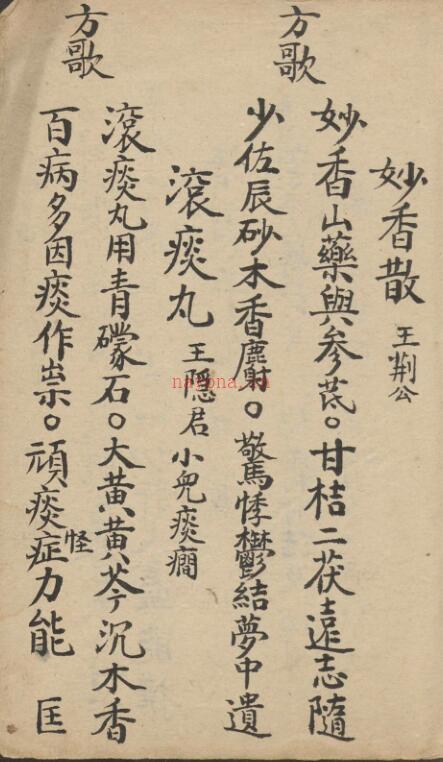 妙香散 王荆公
方歌
妙香山藥與參芪。甘桔二茯遠志隨
少佐辰砂木香麝。驚悸鬱結夢中遺
滚痰丸 王隱君 小兒痰癇
方歌
滚痰丸用青礞石。大黄黄芩沉木香
百病多因痰作祟。頑痰怪症力能匡